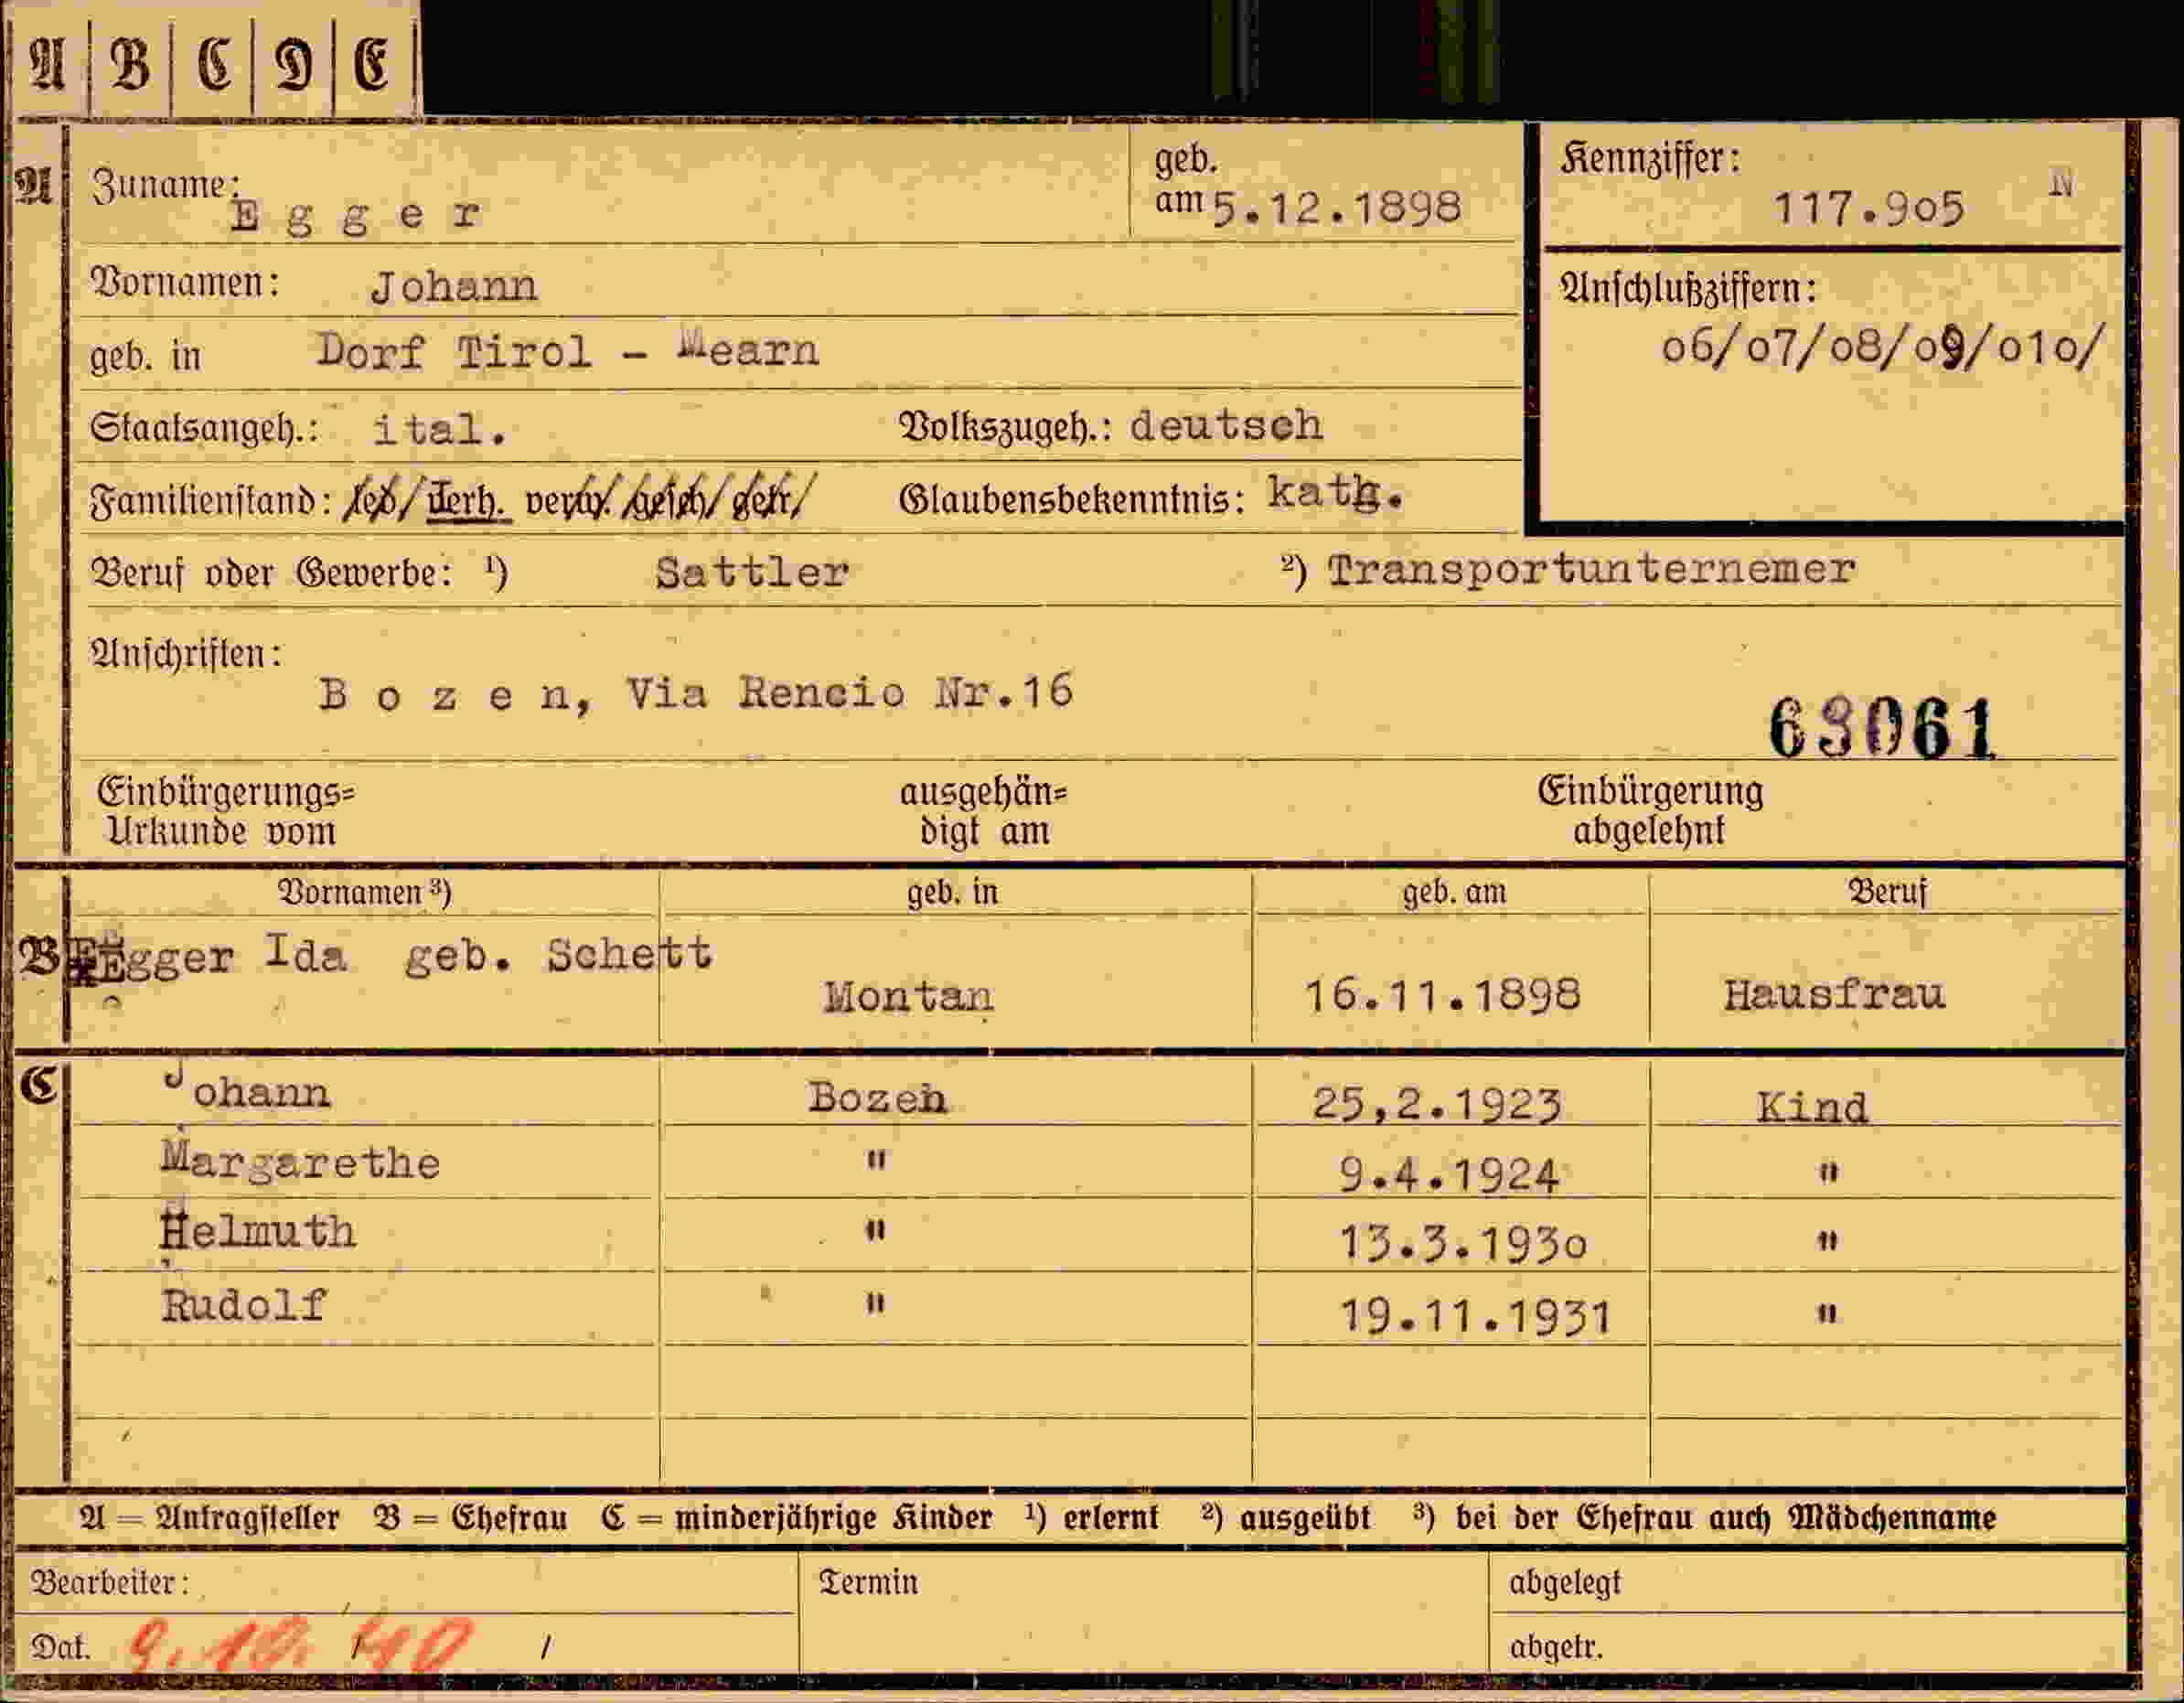 A B C D E
A
Zuname: Egger
geb. am 5.12.1898
Kennziffer: 117.9o5 N
Vornamen: Johann
Anschlußziffern:
o6/o7/o8/o9/o1o/
geb. in Dorf Tirol - Mearn
Staatsangeh.: ital. Volkszugeh.: deutsch
Familienstand: led/ verh. verw. gesch/ getr/ Glaubensbekenntnis: kath.
Beruf oder Gewerbe: ¹) Sattler ²) Transportunternemer
Anschriften:
Bozen, Via Rencio Nr.16
63061
Einbürgerungs= ausgehän= Einbürgerung
Urkunde vom digt am abgelehnt
Vornamen ³) geb. in geb. am Beruf
B Egger Ida geb. Schett
Montan 16.11.1898 Hausfrau
C Johann Bozen 25,2.1923 Kind
Margarethe " 9.4.1924 "
Helmuth " 13.3.193o "
Rudolf " 19.11.1931 "
A = Antragsteller B = Ehefrau C = minderjährige Kinder ¹) erlernt ²) ausgeübt ³) bei der Ehefrau auch Mädchenname
Bearbeiter: Termin abgelegt
Dat. 9.10.40 abgetr.